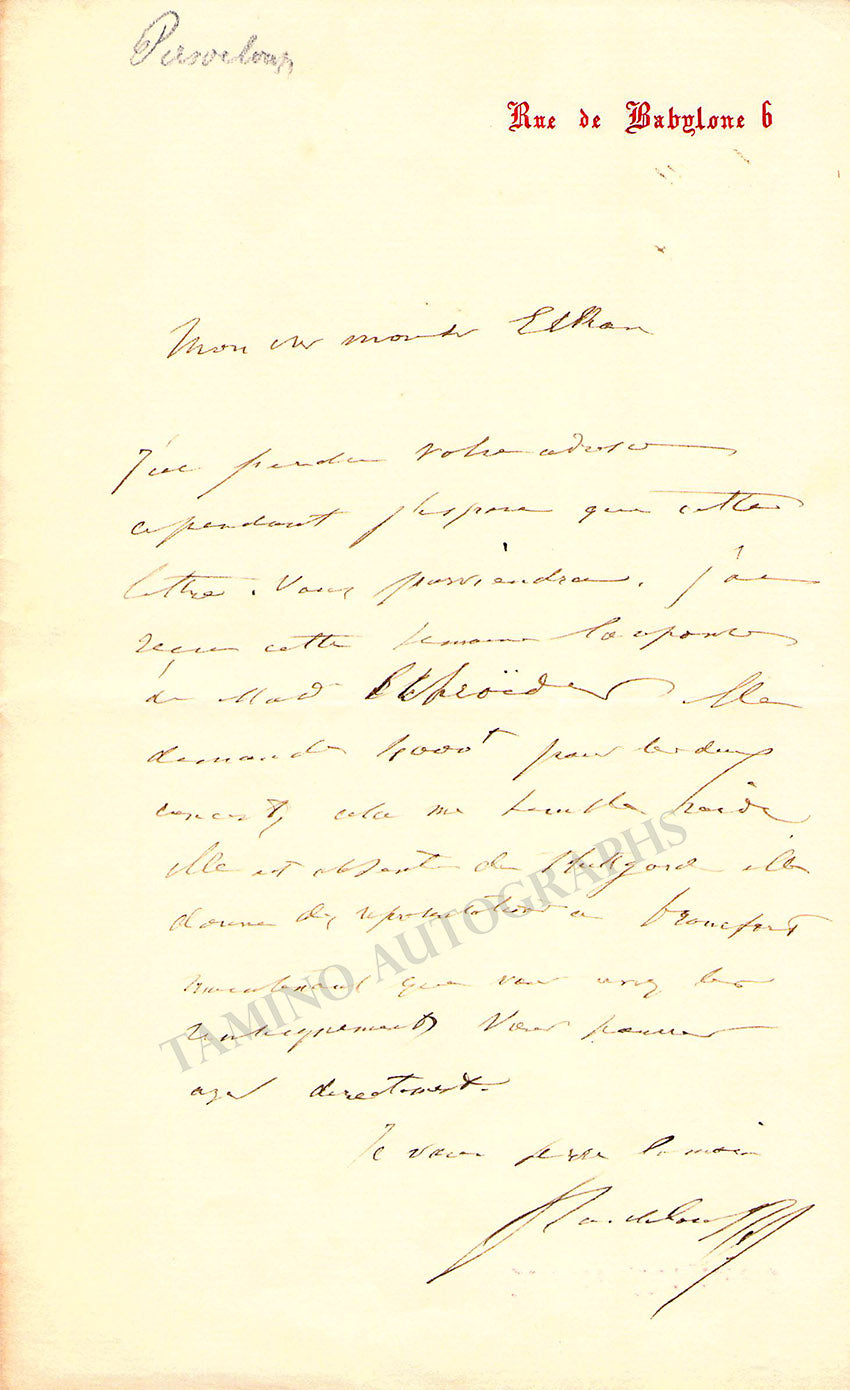 Pasdeloup
Rue de Babylone 6
Mon cher
J'ai perdu votre adresse
cependant j'espère que cette
lettre vous parviendra. J'ai
reçu cette semaine la réponse
de Mad Schroëder elle
demande pour les deux
concerts, cela me semble raide
elle est absente de Stuttgard elle
donne des représentations à Francfort
maintenant que vous avez les
renseignements vous pouvez
agir directement.
Je vous serre la main
Pasdeloup
TAMINO AUTOGRAPHS